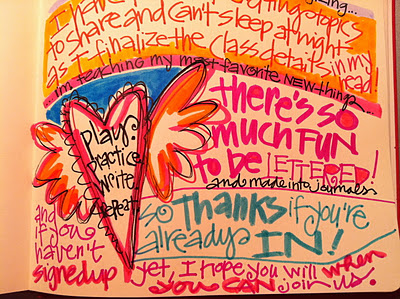 I have
to share and can't sleep at night
as I finalize the class details in my head!
...i'm teaching my most favorite NEW things...
there's so
much FUN
to be LETTERED!
and made into journals.
play.
practice.
write.
repeat.
so THANKS if you're
already IN!
and
if you
haven't
signed up yet, I hope you will when
you CAN join us.